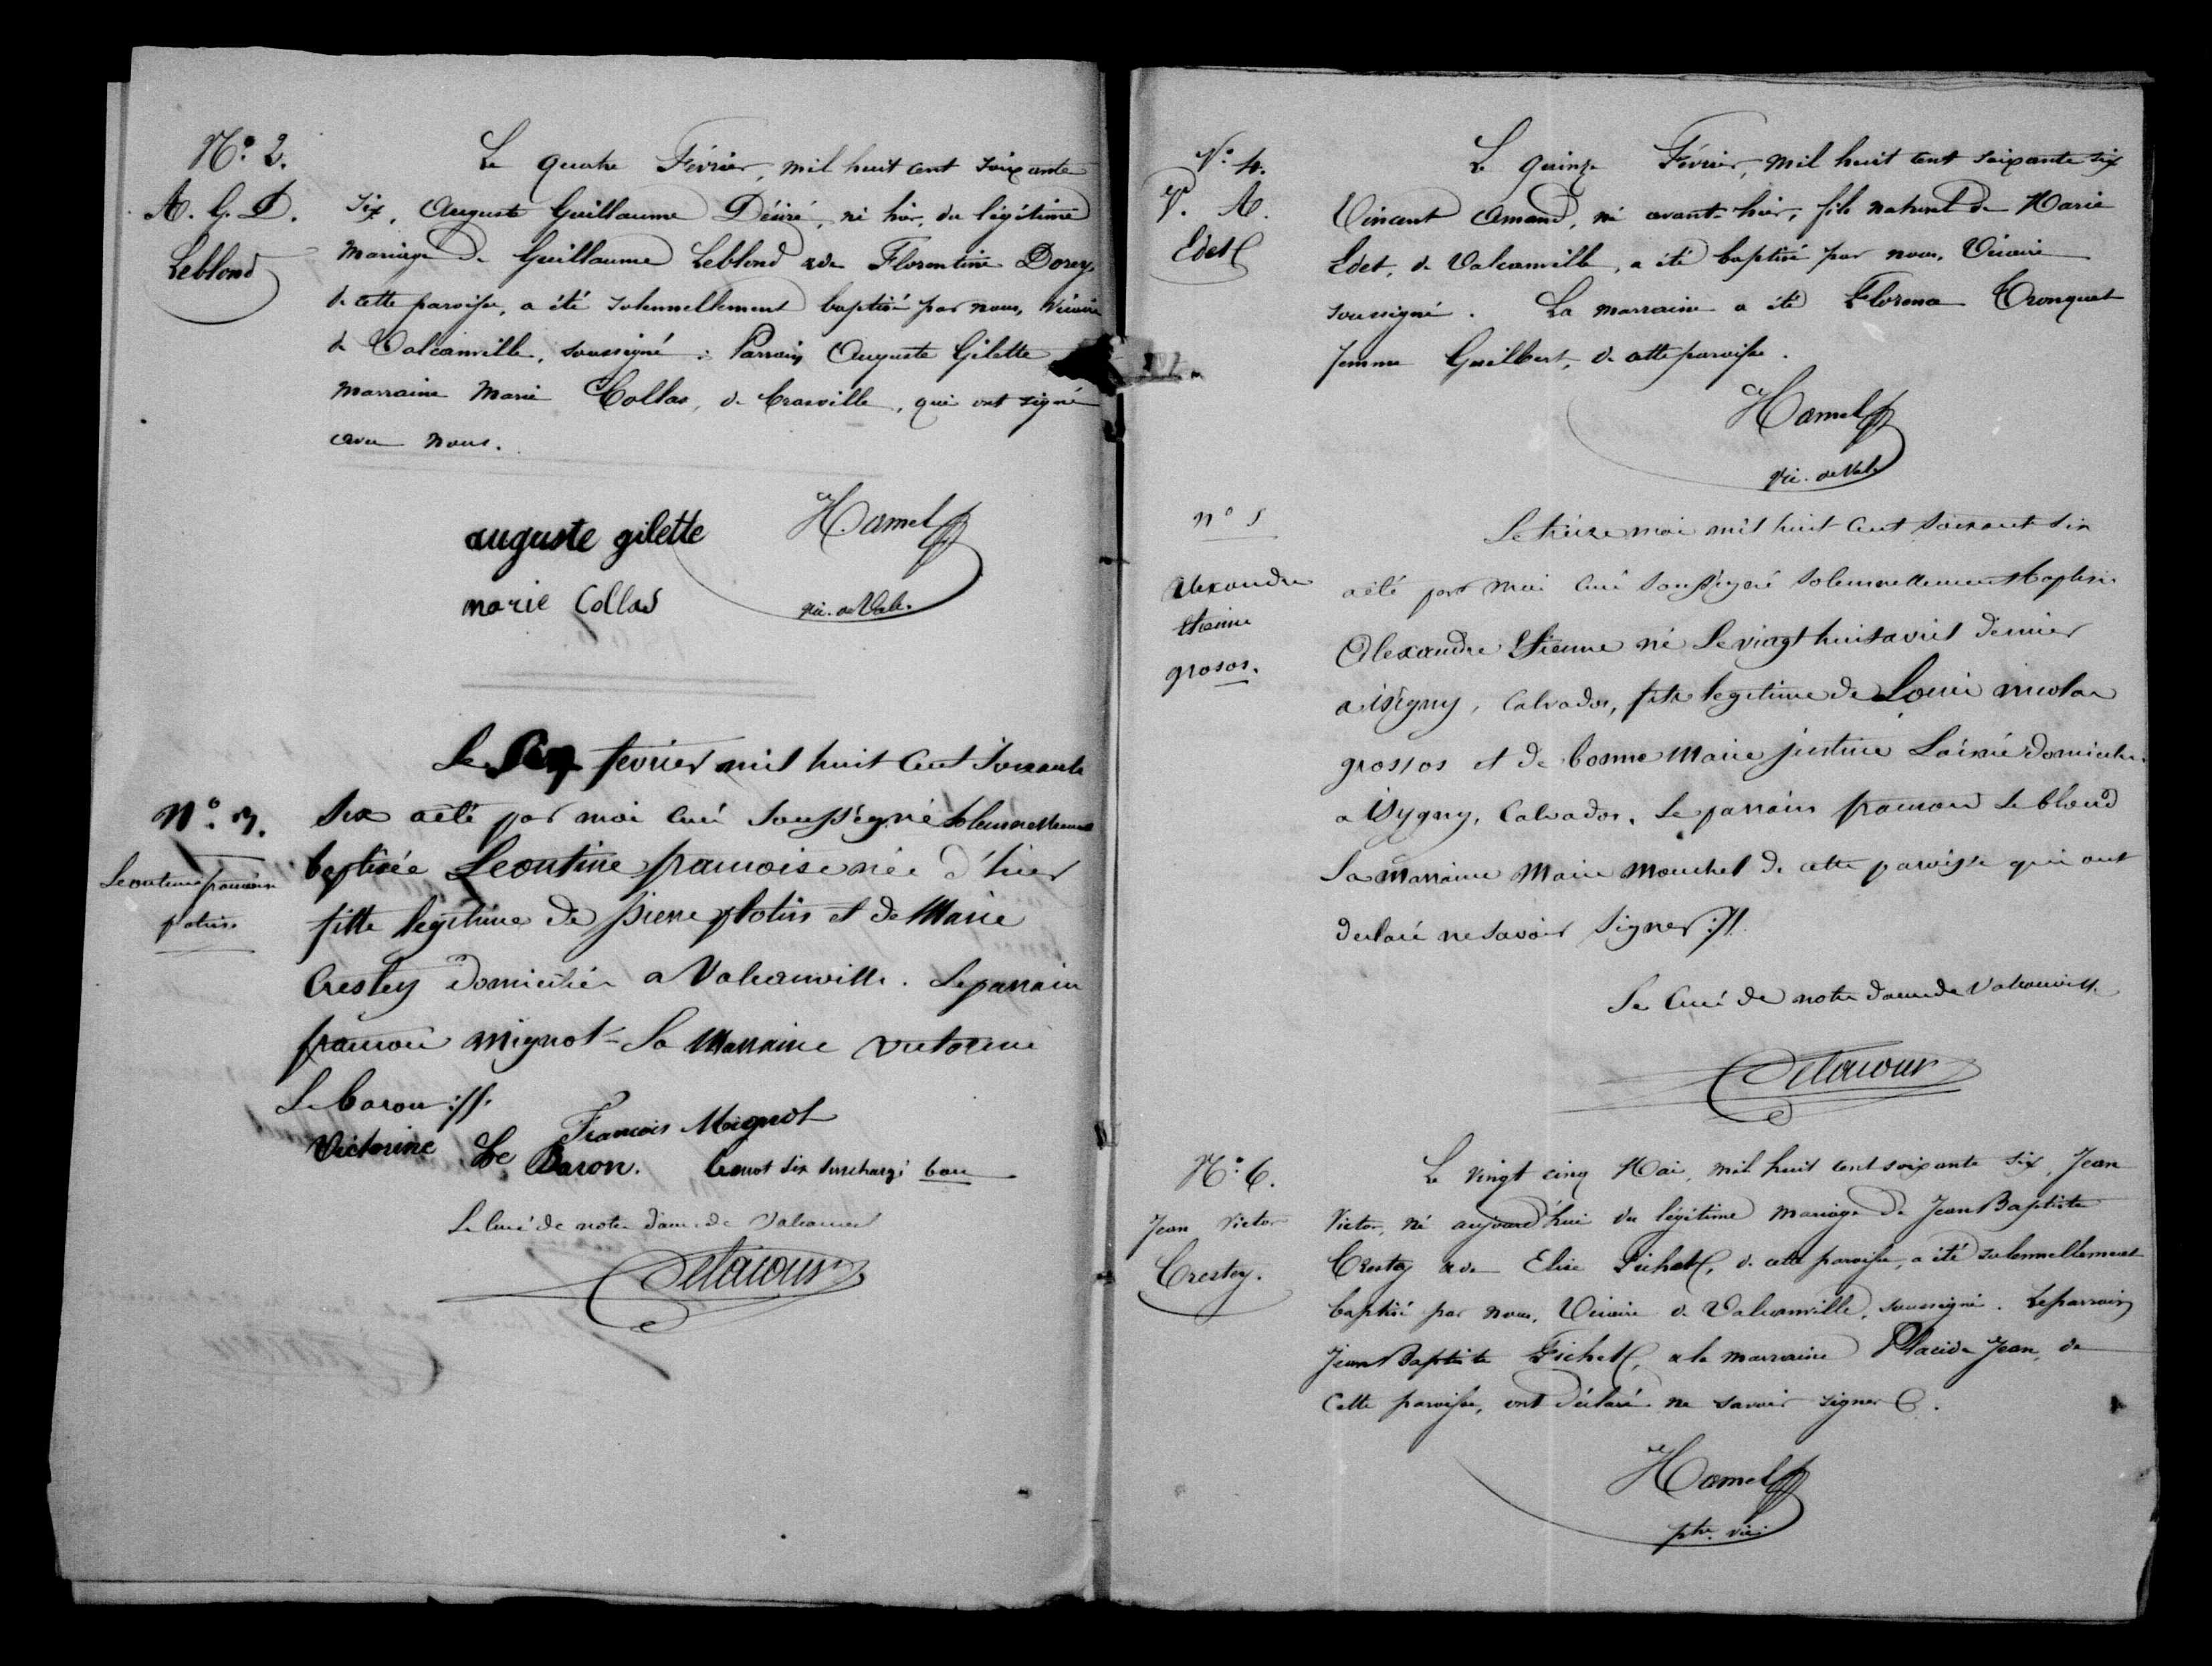 N.° 2.
A. G. D.
Leblond
Le quatre Février, mil huit cent soixante
six, Auguste Guillaume Désiré, né hier, du légitime
mariage de Guillaume Leblond & de Florentine Dorey,
de cette paroisse, a été solennellement baptisé par nous, Vicaire
de Valcanville, soussigné : Parrain Auguste Gilette
marraine Marie Collas, de Crasville, qui ont signé
avec nous.
auguste gilette
Hamel
marie Collas
vic. de Valc.
N.° 3.
Leontine françoise
potin
Le Six fevrier mil huit Cent Soixante
Six a été par moi curé Soussigné Solennellement
baptisée Leontine françoise née d'hier
fille legitime de pierre potin et de Marie
Crestey domiciliés a Valcanville. Le parrain
francois mignot - La Marraine victorine
Le baron ://.
François Mignot
Victorine Le Baron.
Le mot Six Surchargé bon
Le Curé de notre dame de Valcanvil
Delacour
N.° 4.
V. A.
Edet
Le quinze Février, mil huit cent soixante six
Vincent Amand, né avant-hier, fils naturel de Marie
Edet, de Valcanville, a été baptisé par nous, Vicaire
soussigné. La marraine a été Florence Tronquet
femme Guilbert, de cette paroisse.
Hamel
vic. de Valc
n° 5
Alexandre
Etienne
grosos.
Le treize mai mil huit Cent Soixante Six
a été par moi Curé Soussigné Solennellement baptisé
Alexandre Etienne né Le vingt huit avril dernier
a isigny, Calvados, fils legitime de Louis nicolas
grossos et de bonne Marie justine Lainé domiciliés
a isygny, Calvados. Le parrain francois Le blond
La marraine Marie Mouchel de cette paroisse qui ont
declaré ne Savoir Signer ://.
Le Curé de notre dame de Valcanville
Delacour
N.° 6.
Jean Victor
Crestey.
Le vingt cinq Mai, mil huit cent soixante six, Jean
Victor, né aujourd'hui du légitime mariage de Jean Baptiste
Crestey & de Elise Fichet, de cette paroisse, a été solennellement
baptisé par nous, Vicaire de Valcanville, soussigné. Le parrain
Jean Baptiste Fichet, & la marraine Placide Jean, de
cette paroisse, ont déclaré ne savoir signer.
Hamel
ptre. vic.